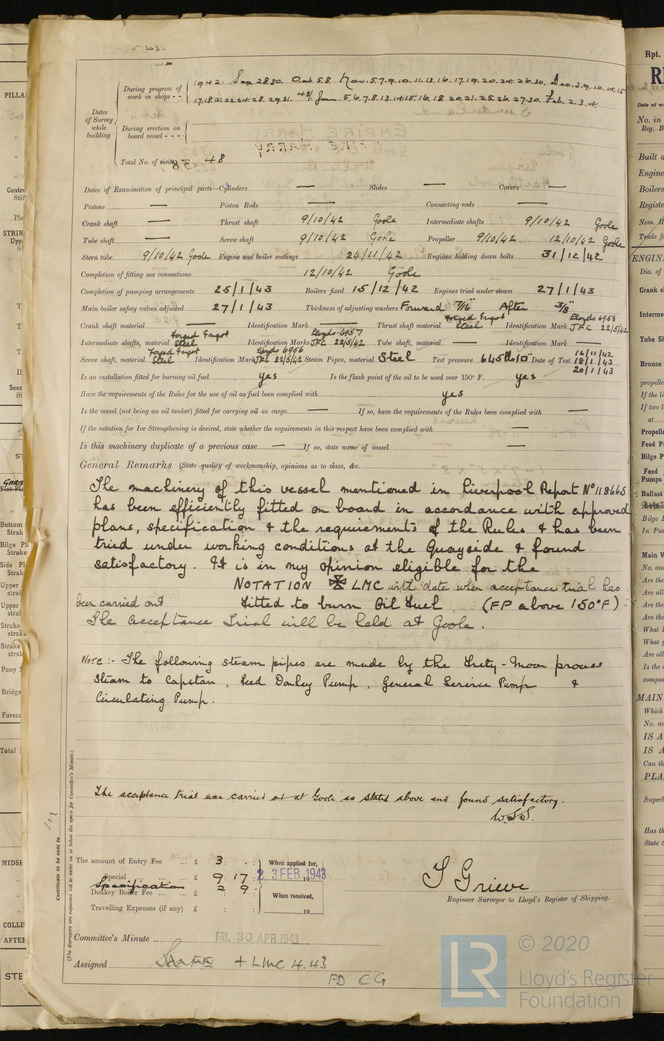 Dates of Survey while building
During progress of work in shops - -
1942. Sep. 28.30. Oct. 5.8. Nov. 5.7.9.10.11.13.16.17.19.20.24.26.30. Dec. 3.9.10.14.15
17.18.21.22.24.28.29.31. 43/ Jan. 5.6.7.8.13.14.15.16.18.20.21.25.26.27.30. Feb. 2.3.4.
During erection on board vessel - - -
Total No. of visits 48
Dates of Examination of principal parts—Cylinders — Slides — Covers —
Pistons — Piston Rods — Connecting rods —
Crank shaft — Thrust shaft 9/10/42 Goole Intermediate shafts 9/10/42 Goole
Tube shaft — Screw shaft 9/10/42 Goole Propeller 9/10/42 12/10/42 Goole
Stern tube 9/10/42 Goole Engine and boiler seatings 24/11/42 Engines holding down bolts 31/12/42
Completion of fitting sea connections 12/10/42 Goole
Completion of pumping arrangements 25/1/43 Boilers fixed 15/12/42 Engines tried under steam 27/1/43
Main boiler safety valves adjusted 27/1/43 Thickness of adjusting washers Forward 7/16" After 3/8"
Crank shaft material — Identification Mark — Thrust shaft material Forged Ingot Steel Identification Mark Lloyds 6958 JFC 22/5/42
Intermediate shafts, material Forged Ingot Steel Identification Marks Lloyds 6957 JFC 22/5/42 Tube shaft, material — Identification Mark —
Screw shaft, material Forged Ingot Steel Identification Mark Lloyds 6956 JFC 22/5/42 Steam Pipes, material Steel Test pressure 645 lbs □" Date of Test 16/11/42 18/1/43 20/1/43
Is an installation fitted for burning oil fuel yes Is the flash point of the oil to be used over 150° F. yes
Have the requirements of the Rules for the use of oil as fuel been complied with yes
Is the vessel (not being an oil tanker) fitted for carrying oil as cargo — If so, have the requirements of the Rules been complied with —
If the notation for Ice Strengthening is desired, state whether the requirements in this respect have been complied with —
Is this machinery duplicate of a previous case — If so, state name of vessel
General Remarks (State quality of workmanship, opinions as to class, &c.
The machinery of this vessel mentioned in Liverpool Report No 118665
has been efficiently fitted on board in accordance with approved
plans, specification & the requirements of the Rules & has been
tried under working conditions at the Quayside & found
satisfactory. It is in my opinion eligible for the
NOTATION ✠ LMC with date when acceptance trial has
been carried out Fitted to burn Oil Fuel. (FP above 150°F)
The acceptance Trial will be held at Goole.
NOTE :- The following steam pipes are made by the process
Steam to Capstan, Feed Donkey Pump, General Service Pump &
Circulating Pump.
The acceptance trial was carried out at Goole as stated above and found satisfactory.
Certificate to be sent to
(The Surveyors are requested not to write on or below the space for Committee's Minute.)
The amount of Entry Fee ... £ 3 : - :
Special ... £ 9 . 17
Specification
Donkey Boiler Fee ... £ 2 9 :
Travelling Expenses (if any) £ : :
When applied for,
23 FEB 1943
When received,
19
T Grieve
Engineer Surveyor to Lloyd's Register of Shipping.
Committee's Minute FRI. 30 APR 1943
Assigned + LMC 4.43
FD CG
LR
© 2020
Lloyd's Register
Foundation